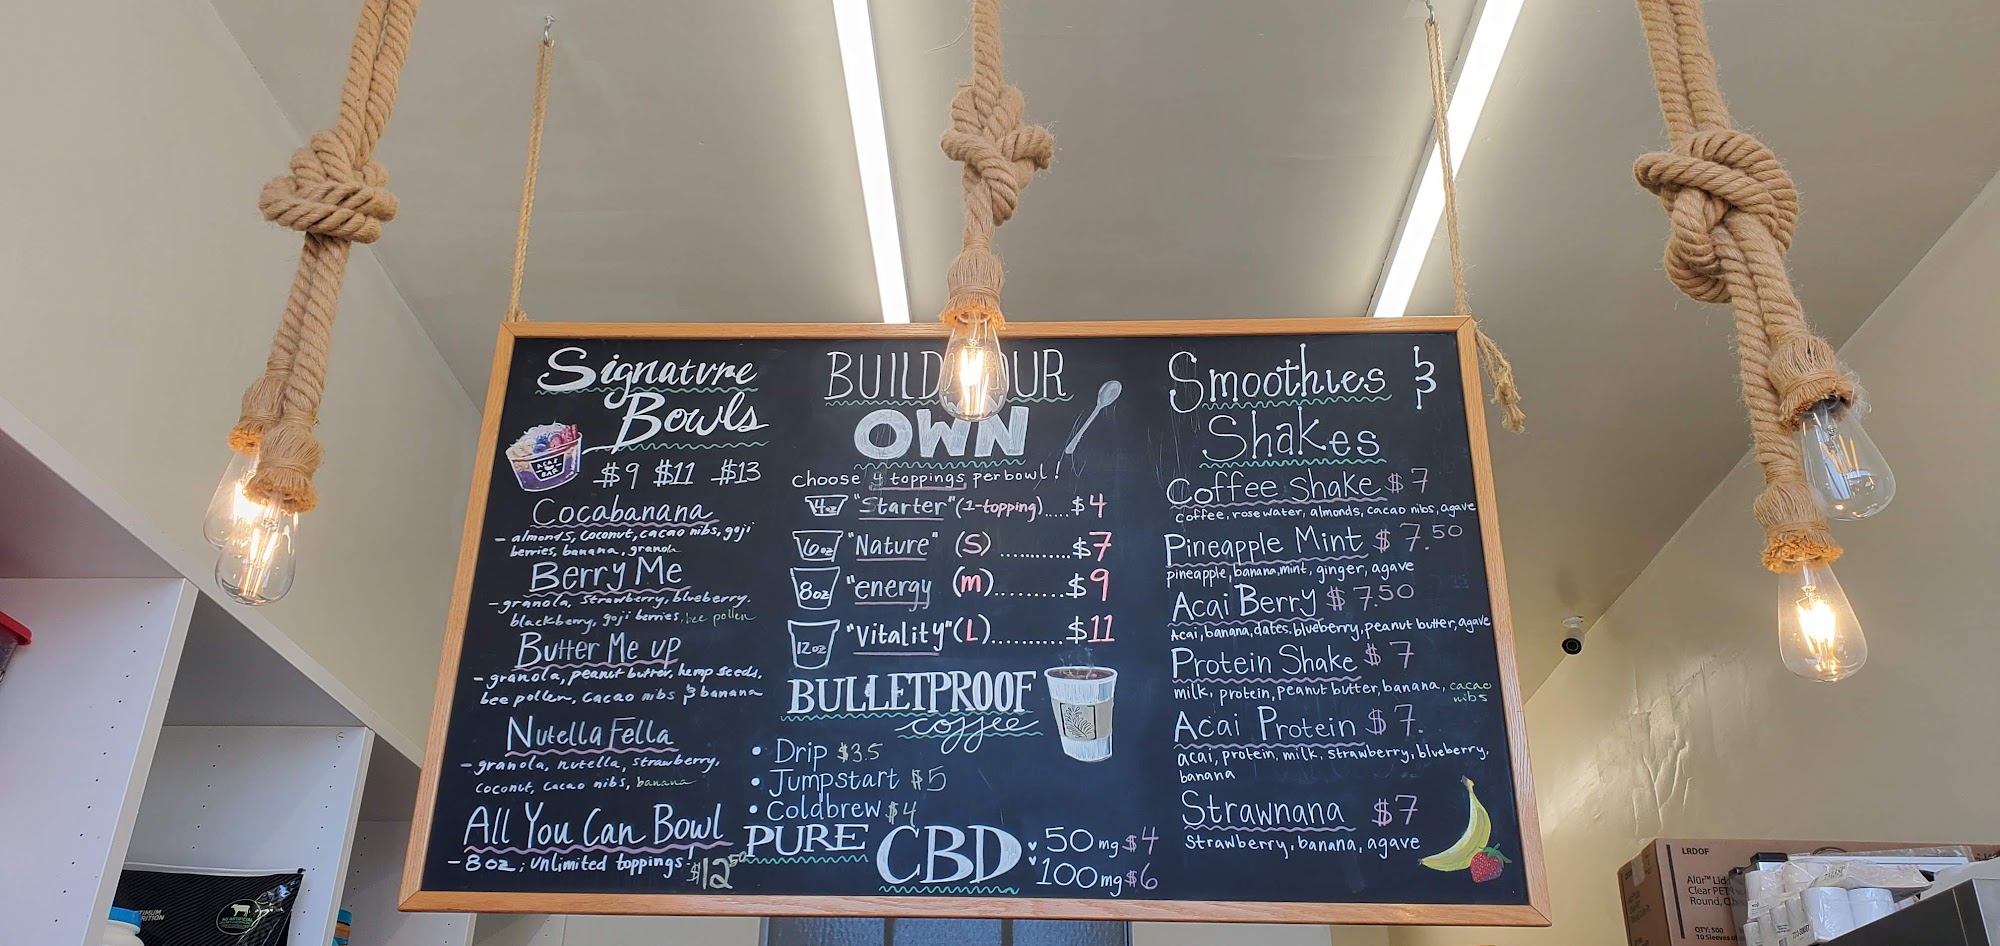 Signature
Bowls
$9 $11 $13
ACAI
BAR
Cocabanana
- almonds, coconut, cacao nibs, goji
berries, banana, granola
Berry Me
- granola, strawberry, blueberry,
blackberry, goji berries, bee pollen
Butter Me up
- granola, peanut butter, hemp seeds,
bee pollen, cacao nibs & banana
Nutella Fella
- granola, nutella, strawberry,
coconut, cacao nibs, banana
All You Can Bowl
- 8oz; unlimited toppings! $12.50
BUILD YOUR
OWN
choose 4 toppings per bowl!
4oz "Starter" (1-topping).....$4
6oz "Nature" (S) ..........$7
8oz "energy (m)..........$9
12oz "Vitality" (L)..........$11
BULLETPROOF
coffee
• Drip $3.5
• Jumpstart $5
• Coldbrew $4
PURE CBD
♥ 50mg $4
♥ 100mg $6
Smoothies &
Shakes
Coffee Shake $7
Coffee, rose water, almonds, cacao nibs, agave
Pineapple Mint $7.50
pineapple, banana, mint, ginger, agave
Acai Berry $7.50
Acai, banana, dates, blueberry, peanut butter, agave
Protein Shake $7
milk, protein, peanut butter, banana, cacao
nibs
Acai Protein $7.
acai, protein, milk, strawberry, blueberry,
banana
Strawnana $7
Strawberry, banana, agave
LRDOF
Alür™ Lid
Clear PET
Round, C
QTY: 500
10 Sleeves o